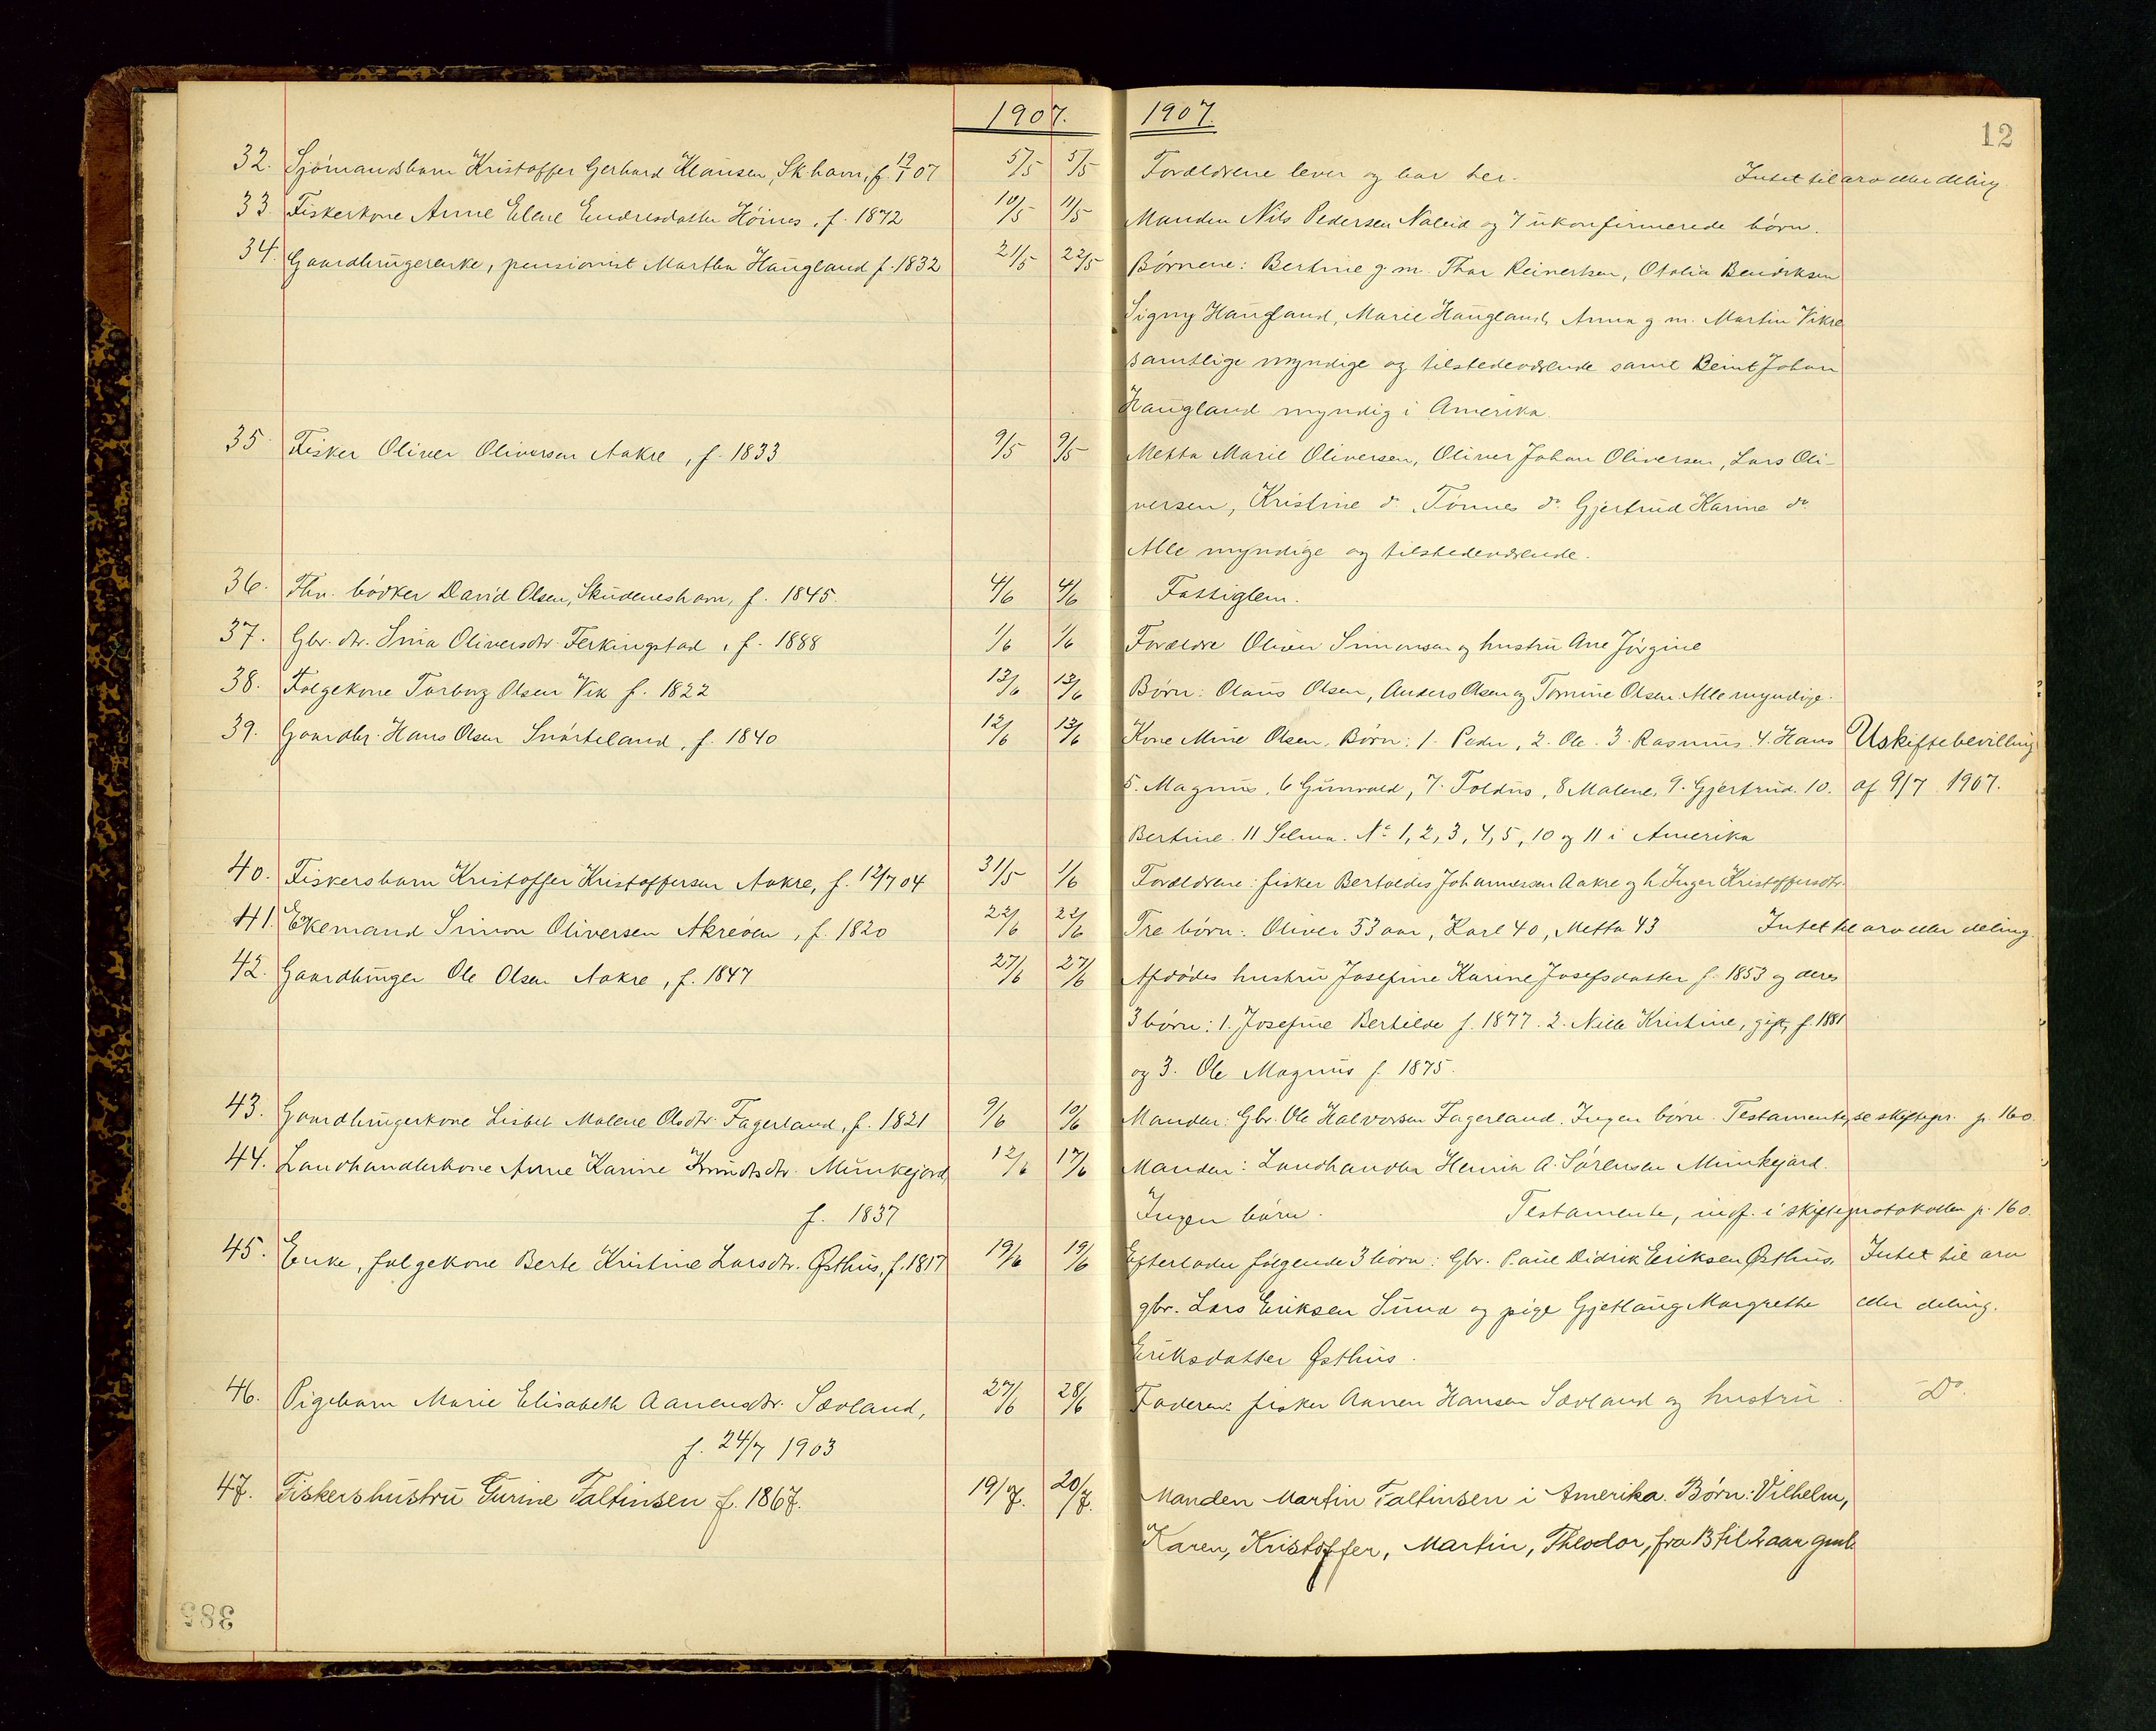 1907. 1907.
12
32. Sjömandsbarn Kristoffer Gerhard Klausen, Sk.havn, f. 19/1 07 5/5 5/5 Forældrene lever og bor her. Intet til arv eller deling
33. Fiskerkone Anne Elene Endresdatter Höines, f. 1872 10/5 11/5 Manden Nils Pedersen Naleid og 7 ukonfirmerede börn.
34. Gaardbrugerenke, pensionist Martha Haugland f. 1832 21/5 22/5 Börnene: Bertine g. m. Thor Reinertsen, Otalia Bendiksen
Signy Haugland, Marie Haugland, Anna g m. Martin Vikre
samtlige myndige og tilstedeværende samt Beint Johan
Haugland myndig i Amerika.
35 Fisker Oliver Oliversen Aakre, f. 1833 9/5 9/5 Metta Marie Oliversen, Oliver Johan Oliversen, Lars Oli-
versen, Kristine do. Tönnes do. Gjertrud Karine do
Alle myndige og tilstedeværende.
36. Fhv. bödker David Olsen, Skudeneshavn, f. 1845. 4/6 4/6 Fattiglem.
37. Gbr. dtr. Sina Oliversdtr. Ferkingstad, f. 1888 1/6 1/6 Forældre Oliver Simonsen og hustru Ane Jörgine
38. Folgekone Torborg Olsen Vik f. 1822 13/6 13/6 Börn: Olaus Olsen, Anders Olsen og Tomine Olsen. Alle myndige.
39. Gaardbr. Hans Olsen Snörteland, f. 1840 12/6 13/6 Kone Mine Olsen. Börn: 1. Peder, 2. Ole. 3. Rasmus. 4. Hans Uskiftebevilling
5. Magnus, 6 Gunvald, 7. Toldus, 8 Malene, 9. Gjertrud. 10. af 9/7 1907.
Bertine. 11 Selma. No 1, 2, 3, 4, 5, 10 og 11 i Amerika
40. Fiskersbarn Kristoffer Kristoffersen Aakre, f. 12/7 04 31/5 1/6 Forældrene: fisker Bertoldes Johannessen Aakre og h. Inger Kristoffersdtr.
41. Ekemand Simon Oliversen Akreöen, f. 1820 22/6 22/6 Tre börn: Oliver 53 aar, Karl 40, Metta 43 Intet til arv eller deling.
42. Gaardbruger Ole Olsen Aakre, f. 1847 27/6 27/6 Afdödes hustru Josefine Karine Josefsdatter f. 1853 og deres
3 börn: 1. Josefine Bertilde f. 1877. 2. Nille Kristine, gift, f. 1881
og 3. Ole Magnus f. 1875.
43. Gaardbrugerkone Lisbet Malene Olsdtr. Fagerland, f. 1821 9/6 10/6 Manden: Gbr. Ole Halvorsen Fagerland. Ingen börn. Testamente, se skiftepr. p. 160.
44. Landhandlerkone Anne Karine Knudtsdtr. Munkejord, 12/6 17/6 Manden: Landhandler Henrik A. Sörensen Munkejord.
f. 1837 Ingen börn. Testamente, indf. i skifteprotokollen p. 160.
45. Enke, folgekone Berte Kristine Larsdtr. Østhus, f. 1817 19/6 19/6 Efterlader fölgende 3 börn: Gbr. Paul Didrik Eriksen Østhus, Intet til arv
gbr. Lars Eriksen Sund og pige Gjetlaug Margrethe eller deling.
Eriksdatter Østhus.
46. Pigebarn Marie Elisabeth Aanensdtr. Sævland, 27/6 28/6 Faderen: fisker Aanen Hansen Sævland og hustru. Do.
f. 24/7 1903
47. Fiskershustru Gurine Faltinsen f. 1867. 19/7. 20/7. Manden Martin Faltinsen i Amerika. Börn: Vilhelm,
Karen, Kristoffer, Martin, Theodor, fra 13 til 2 aar gml.
385